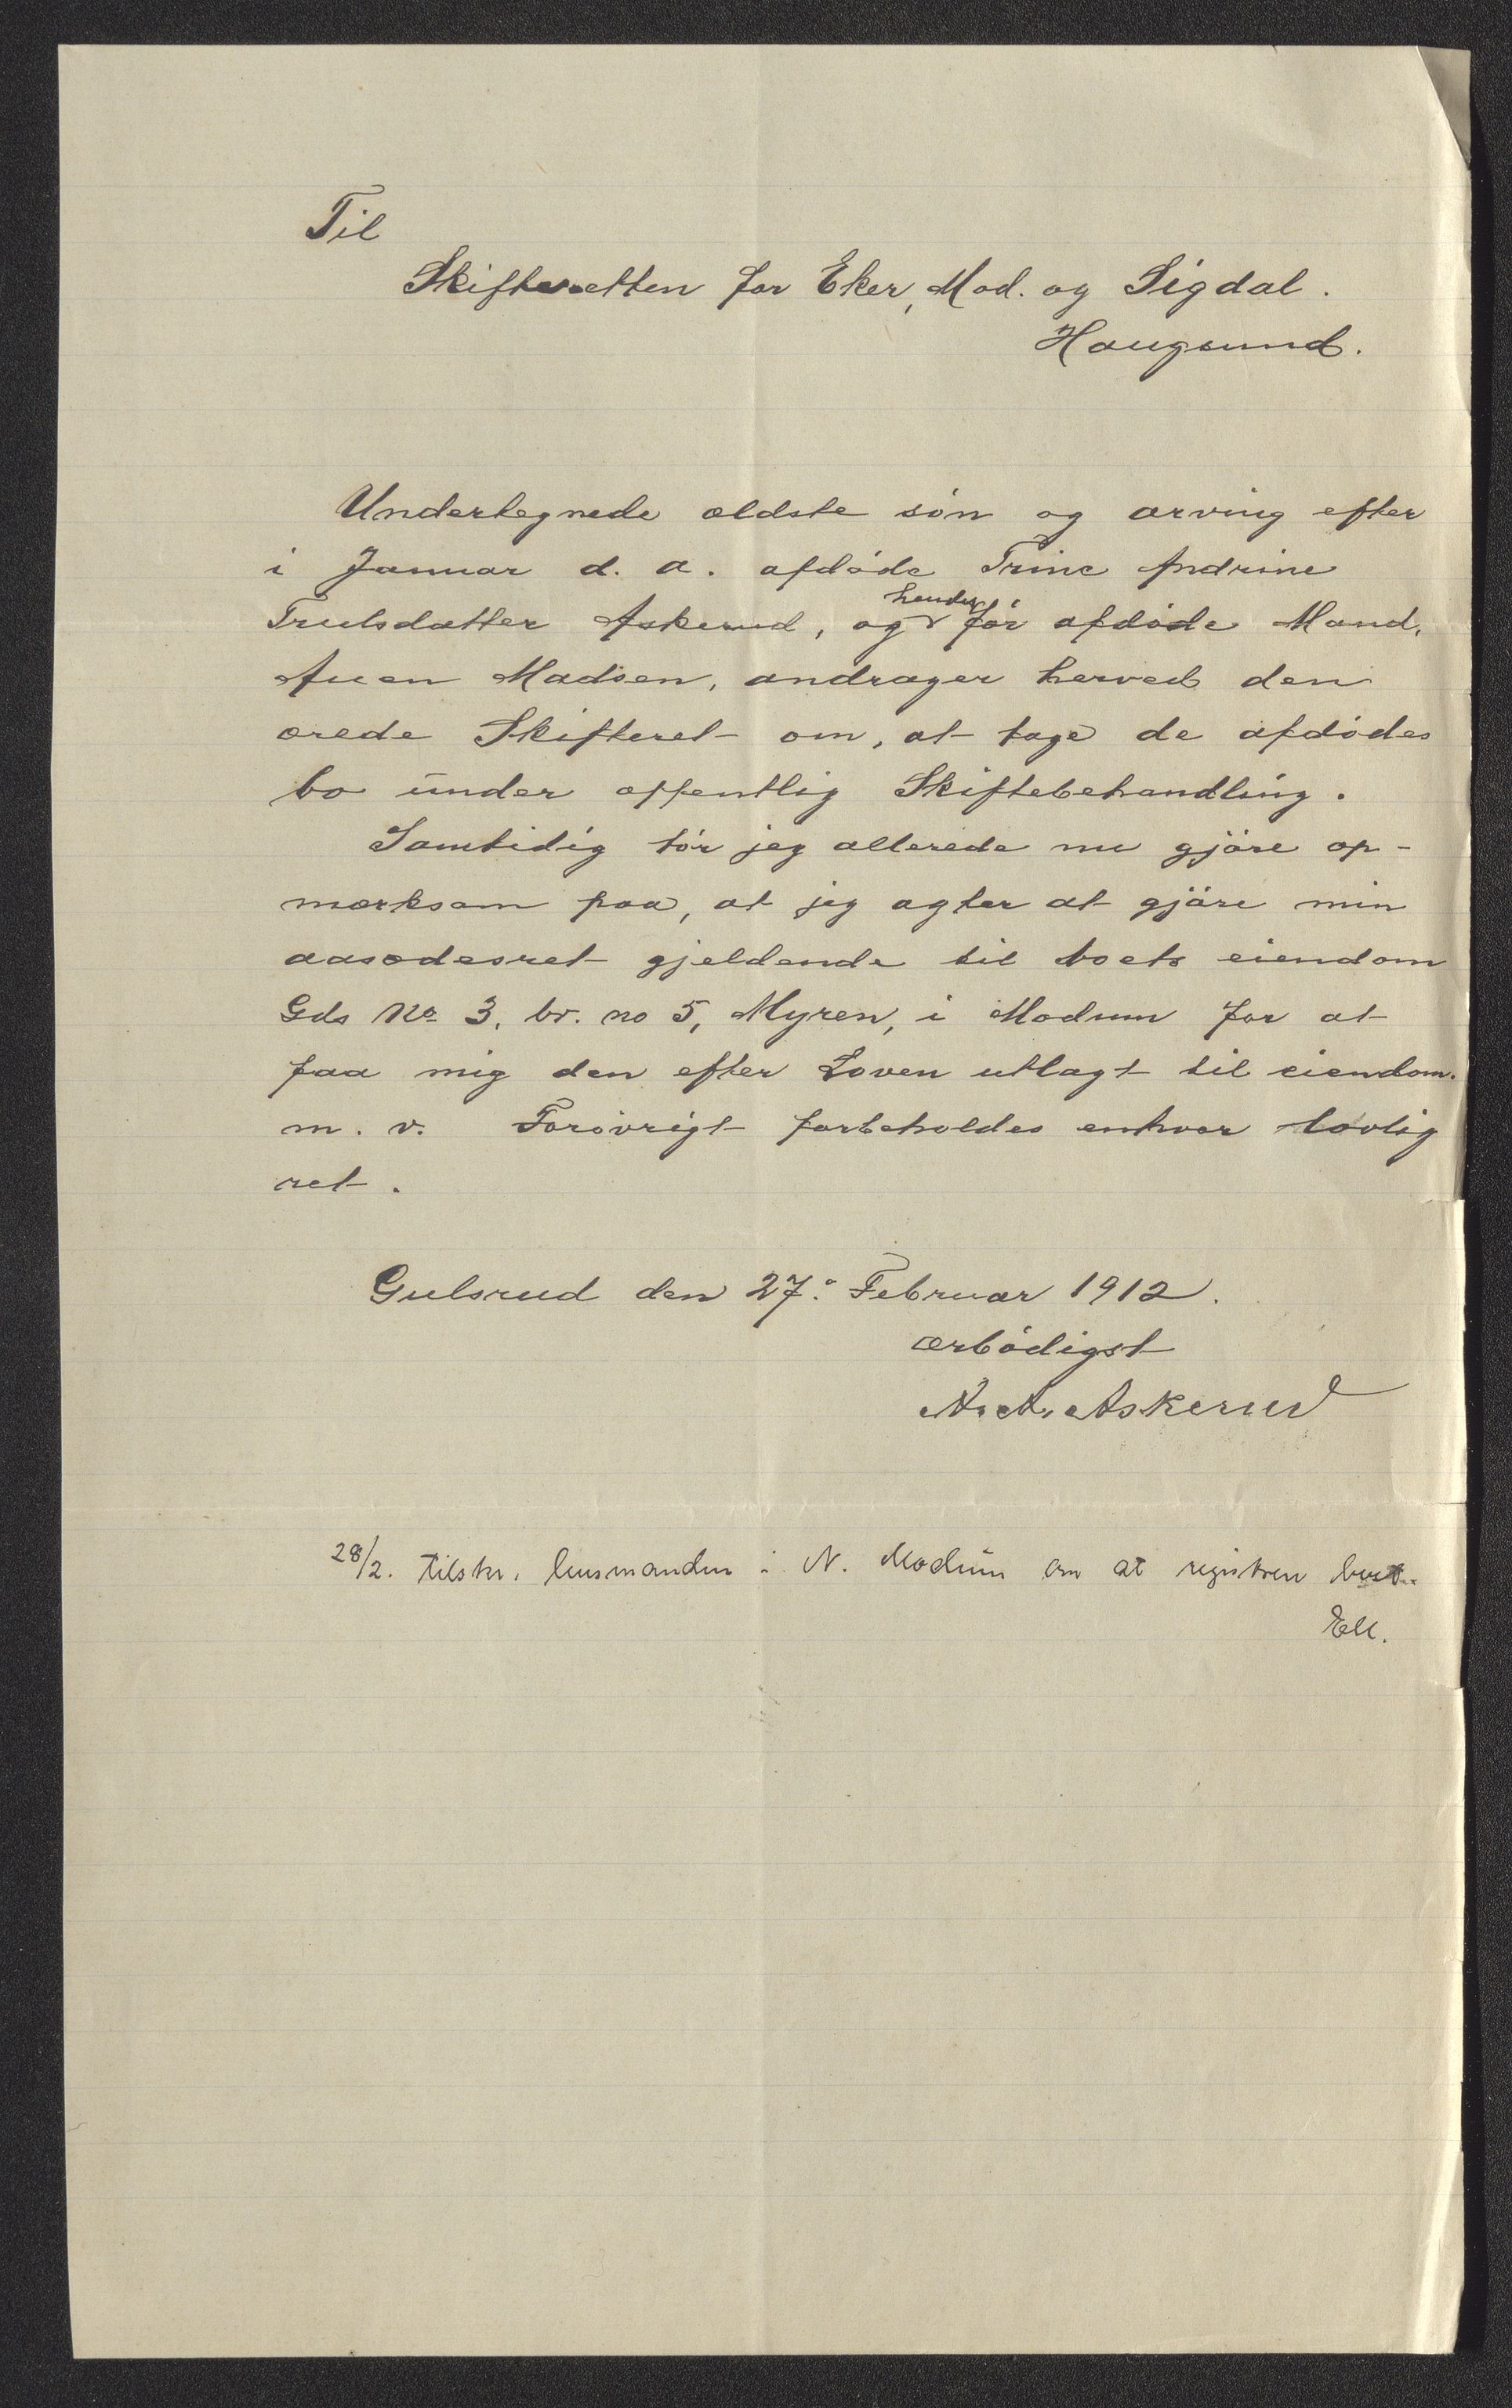 Til
Skifteretten for Eker, Mod. og Sigdal.
Haugsund.
Undertegnede ældste sön og arving efter
i Januar d. a. afdöde Trine Andrine
Trulsdatter Askerud, og hendes för afdöde Mand,
Auen Madsen, andrager herved den
ærede Skifteret om, at tage de afdödes
bo under offentlig Skiftebehandling.
Samtidig tör jeg allerede nu gjöre op-
mærksom paa, at jeg agter at gjöre min
aasædesret gjeldende til boets eiendom
Gds No 3, br. no 5, Myren, i Modum for at
faa mig den efter Loven utlagt til eiendom.
m. v. Forövrigt forbeholdes enhver lovlig
ret.
Gulsrud den 27: Februar 1912.
ærbödigst
A. A. Askerud
28/2. tilskr. lensmanden i N. Modum om at registrere boet.